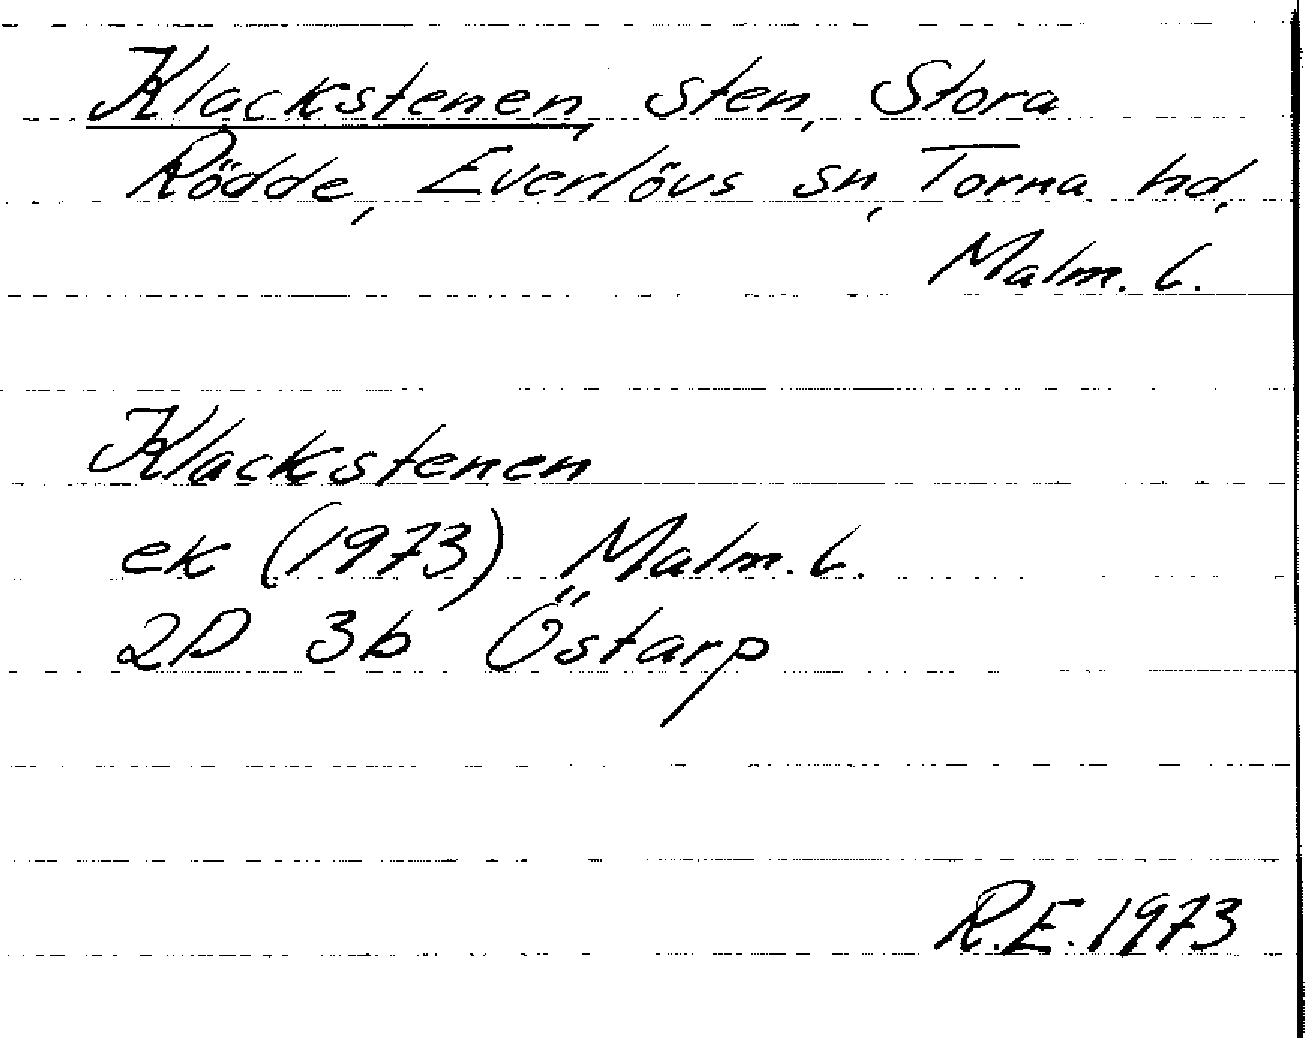 Klackstenen, sten, Stora
Rödde, Everlövs sn, Torna hd,
Malm. l.
Klackstenen
ek (1973) Malm. l.
2D 3b Östarp
R.E. 1973